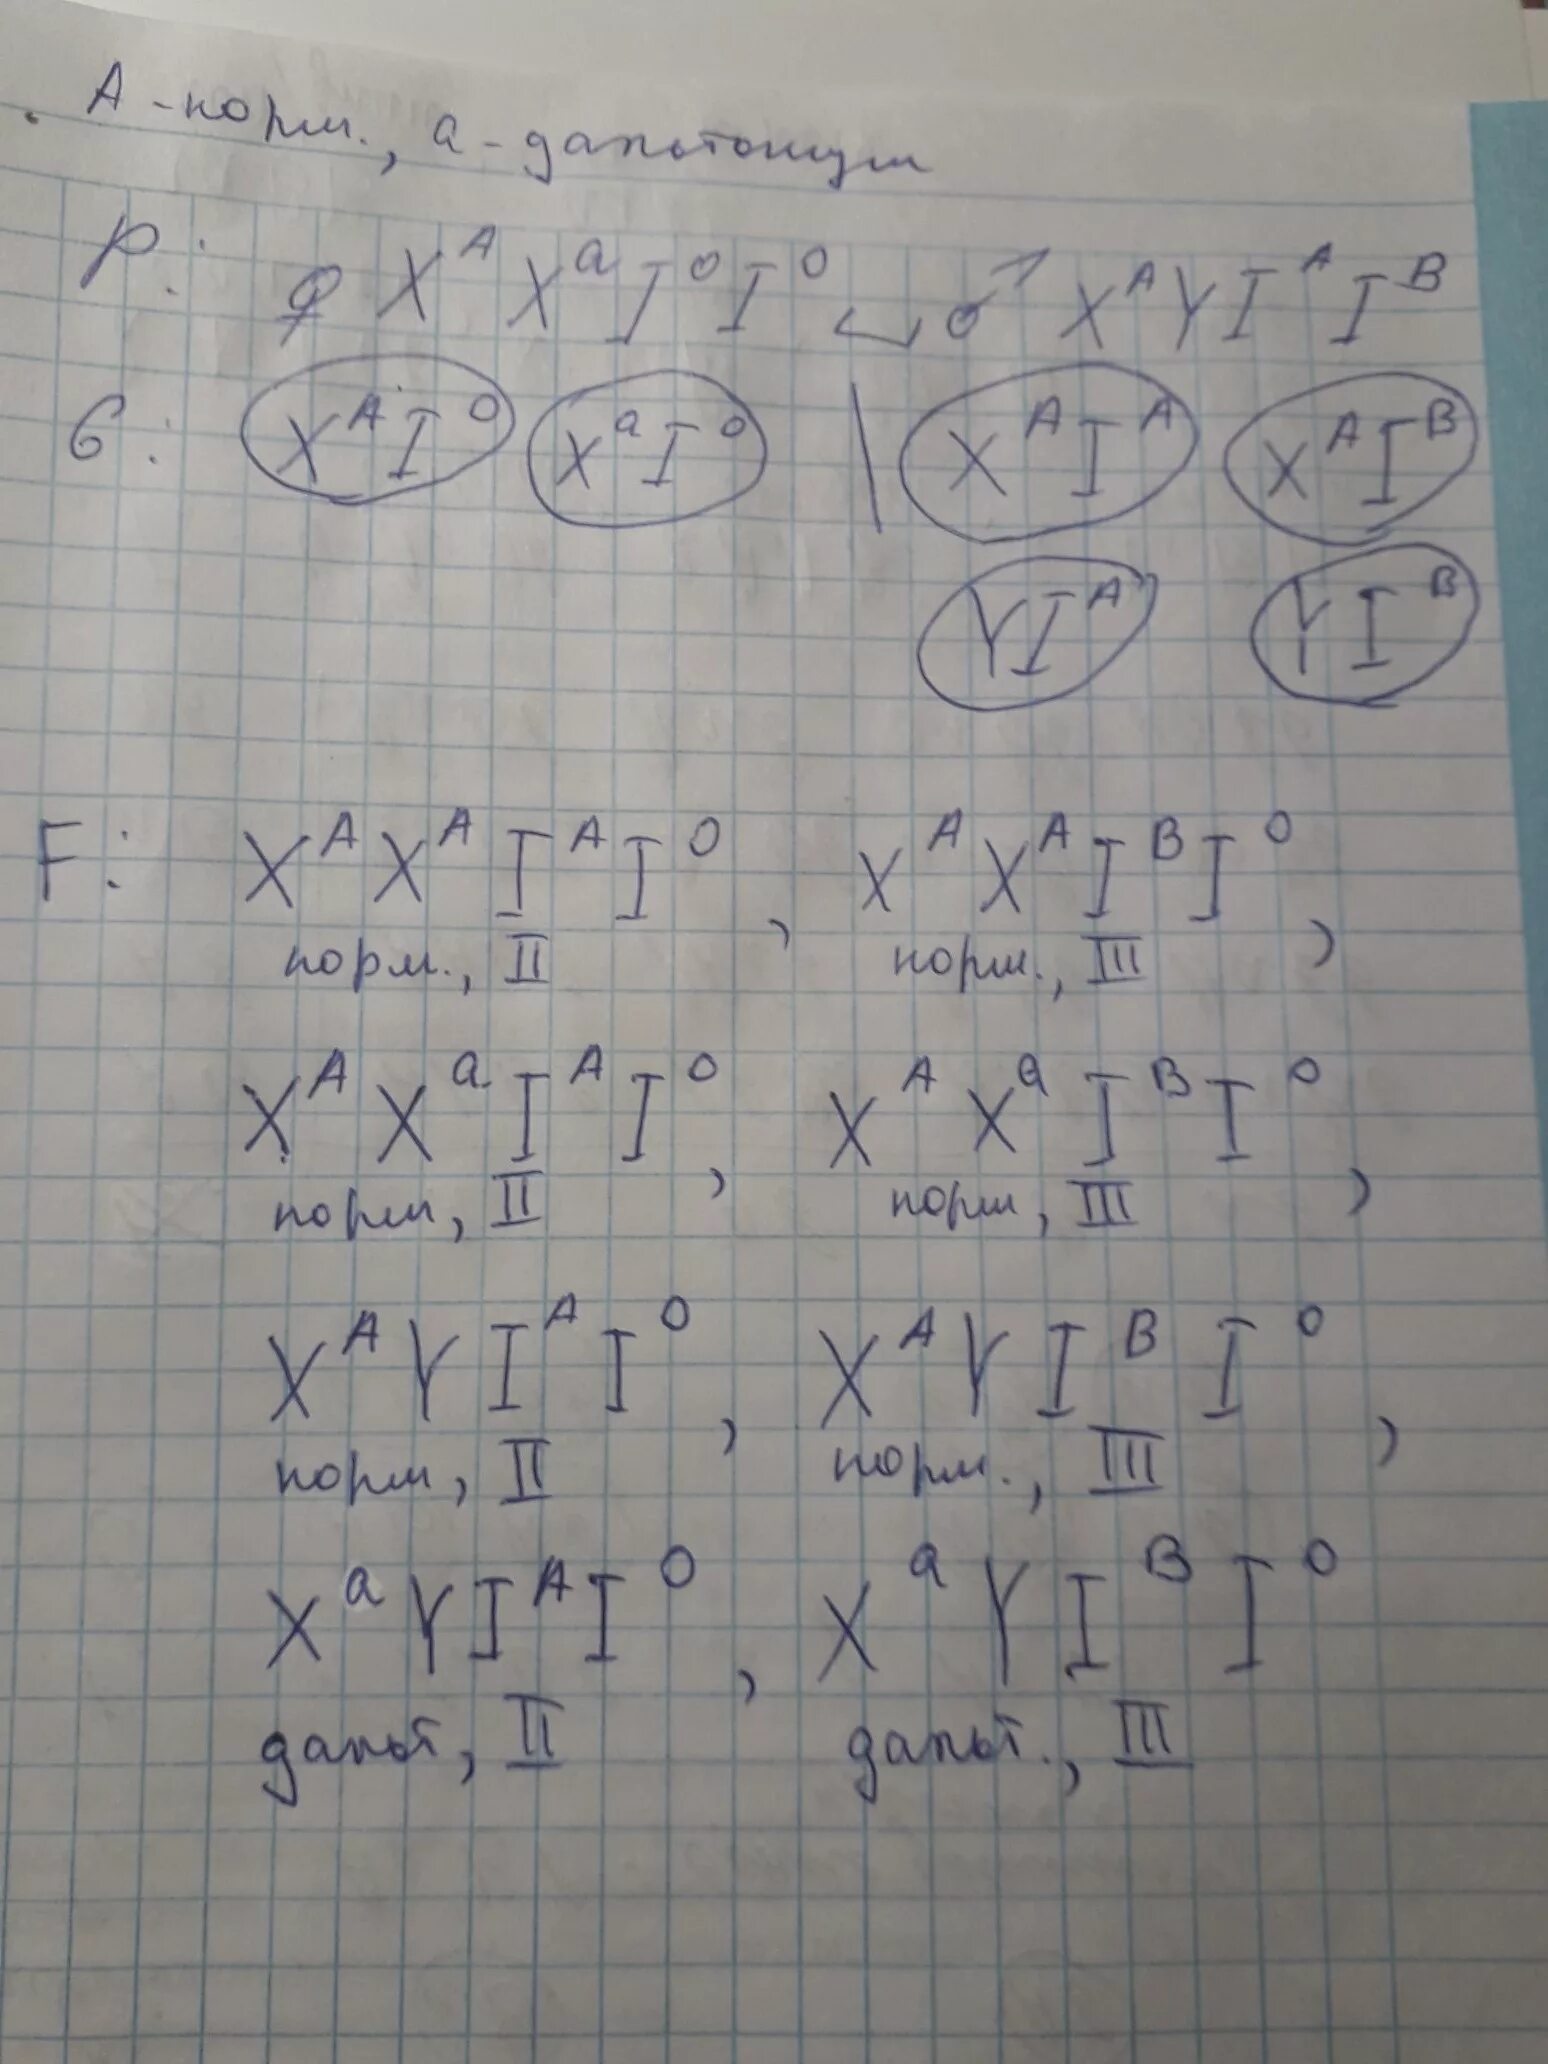 А - норм., а - дальтонизм
P: ♀ X^A X^a I^0 I^0 × ♂ X^A Y I^A I^B
G: X^A I^0 X^a I^0 | X^A I^A X^A I^B
Y I^A Y I^B
F: X^A X^A I^A I^0, X^A X^A I^B I^0,
норм., II норм., III
X^A X^a I^A I^0, X^A X^a I^B I^0,
норм, II норм, III
X^A Y I^A I^0, X^A Y I^B I^0,
норм, II норм., III
X^a Y I^A I^0, X^a Y I^B I^0
дальт, II дальт., III